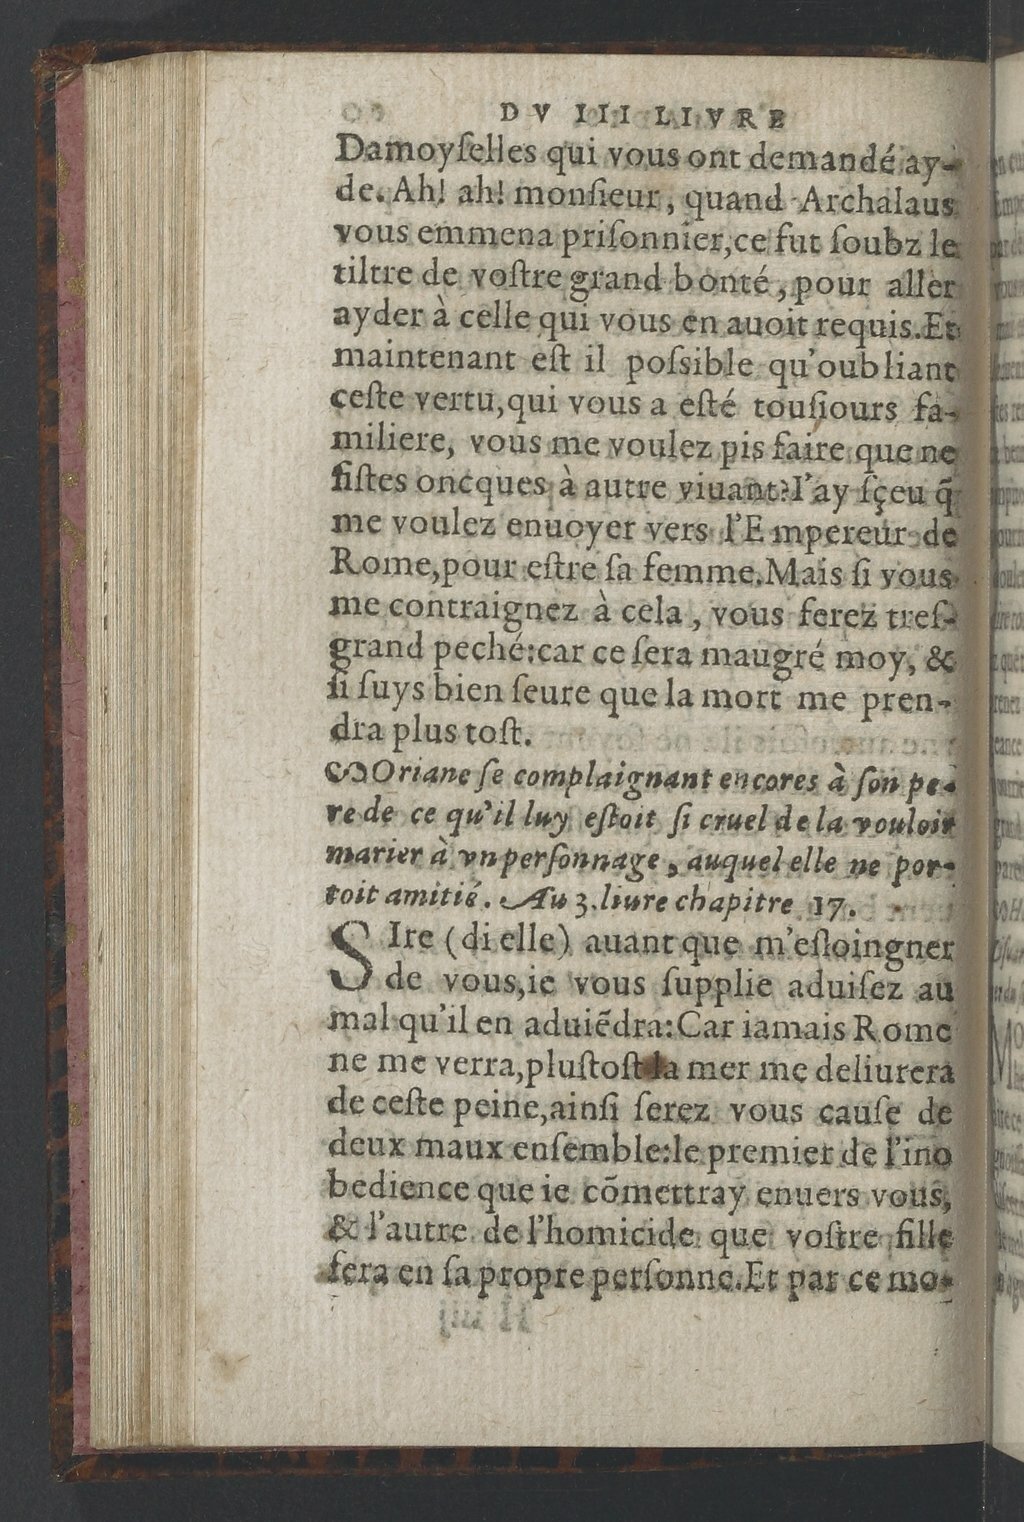 DV III LIVRE
Damoyſelles qui vous ont demandé ay-
de. Ah! ah! monſieur, quand Archalaus
vous emmena priſonnier, ce fut ſoubz le
tiltre de voſtre grand bonté, pour aller
ayder à celle qui vous en auoit requis. Et
maintenant eſt il poſsible qu'oubliant
ceſte vertu, qui vous a eſté touſiours fa-
miliere, vous me voulez pis faire que ne
fiſtes oncques à autre viuant? I'ay ſçeu q̃
me voulez enuoyer vers l'Empereur de
Rome, pour eſtre ſa femme. Mais ſi vous
me contraignez à cela, vous ferez treſ-
grand peché: car ce ſera maugré moy, &
ſi ſuys bien ſeure que la mort me pren-
dra plus toſt.
Oriane ſe complaignant encores à ſon pe-
re de ce qu'il luy eſtoit ſi cruel de la vouloir
marier à vn perſonnage, auquel elle ne por-
toit amitié. Au 3. liure chapitre 17.
SIre (di elle) auant que m'eſloingner
de vous, ie vous ſupplie aduiſez au
mal qu'il en aduiẽdra: Car iamais Rome
ne me verra, pluſtoſt la mer me deliurera
de ceſte peine, ainſi ſerez vous cauſe de
deux maux enſemble: le premier de l'ino
bedience que ie cõmettray enuers vous,
& l'autre de l'homicide que voſtre fille
fera en ſa propre perſonne. Et par ce mo-